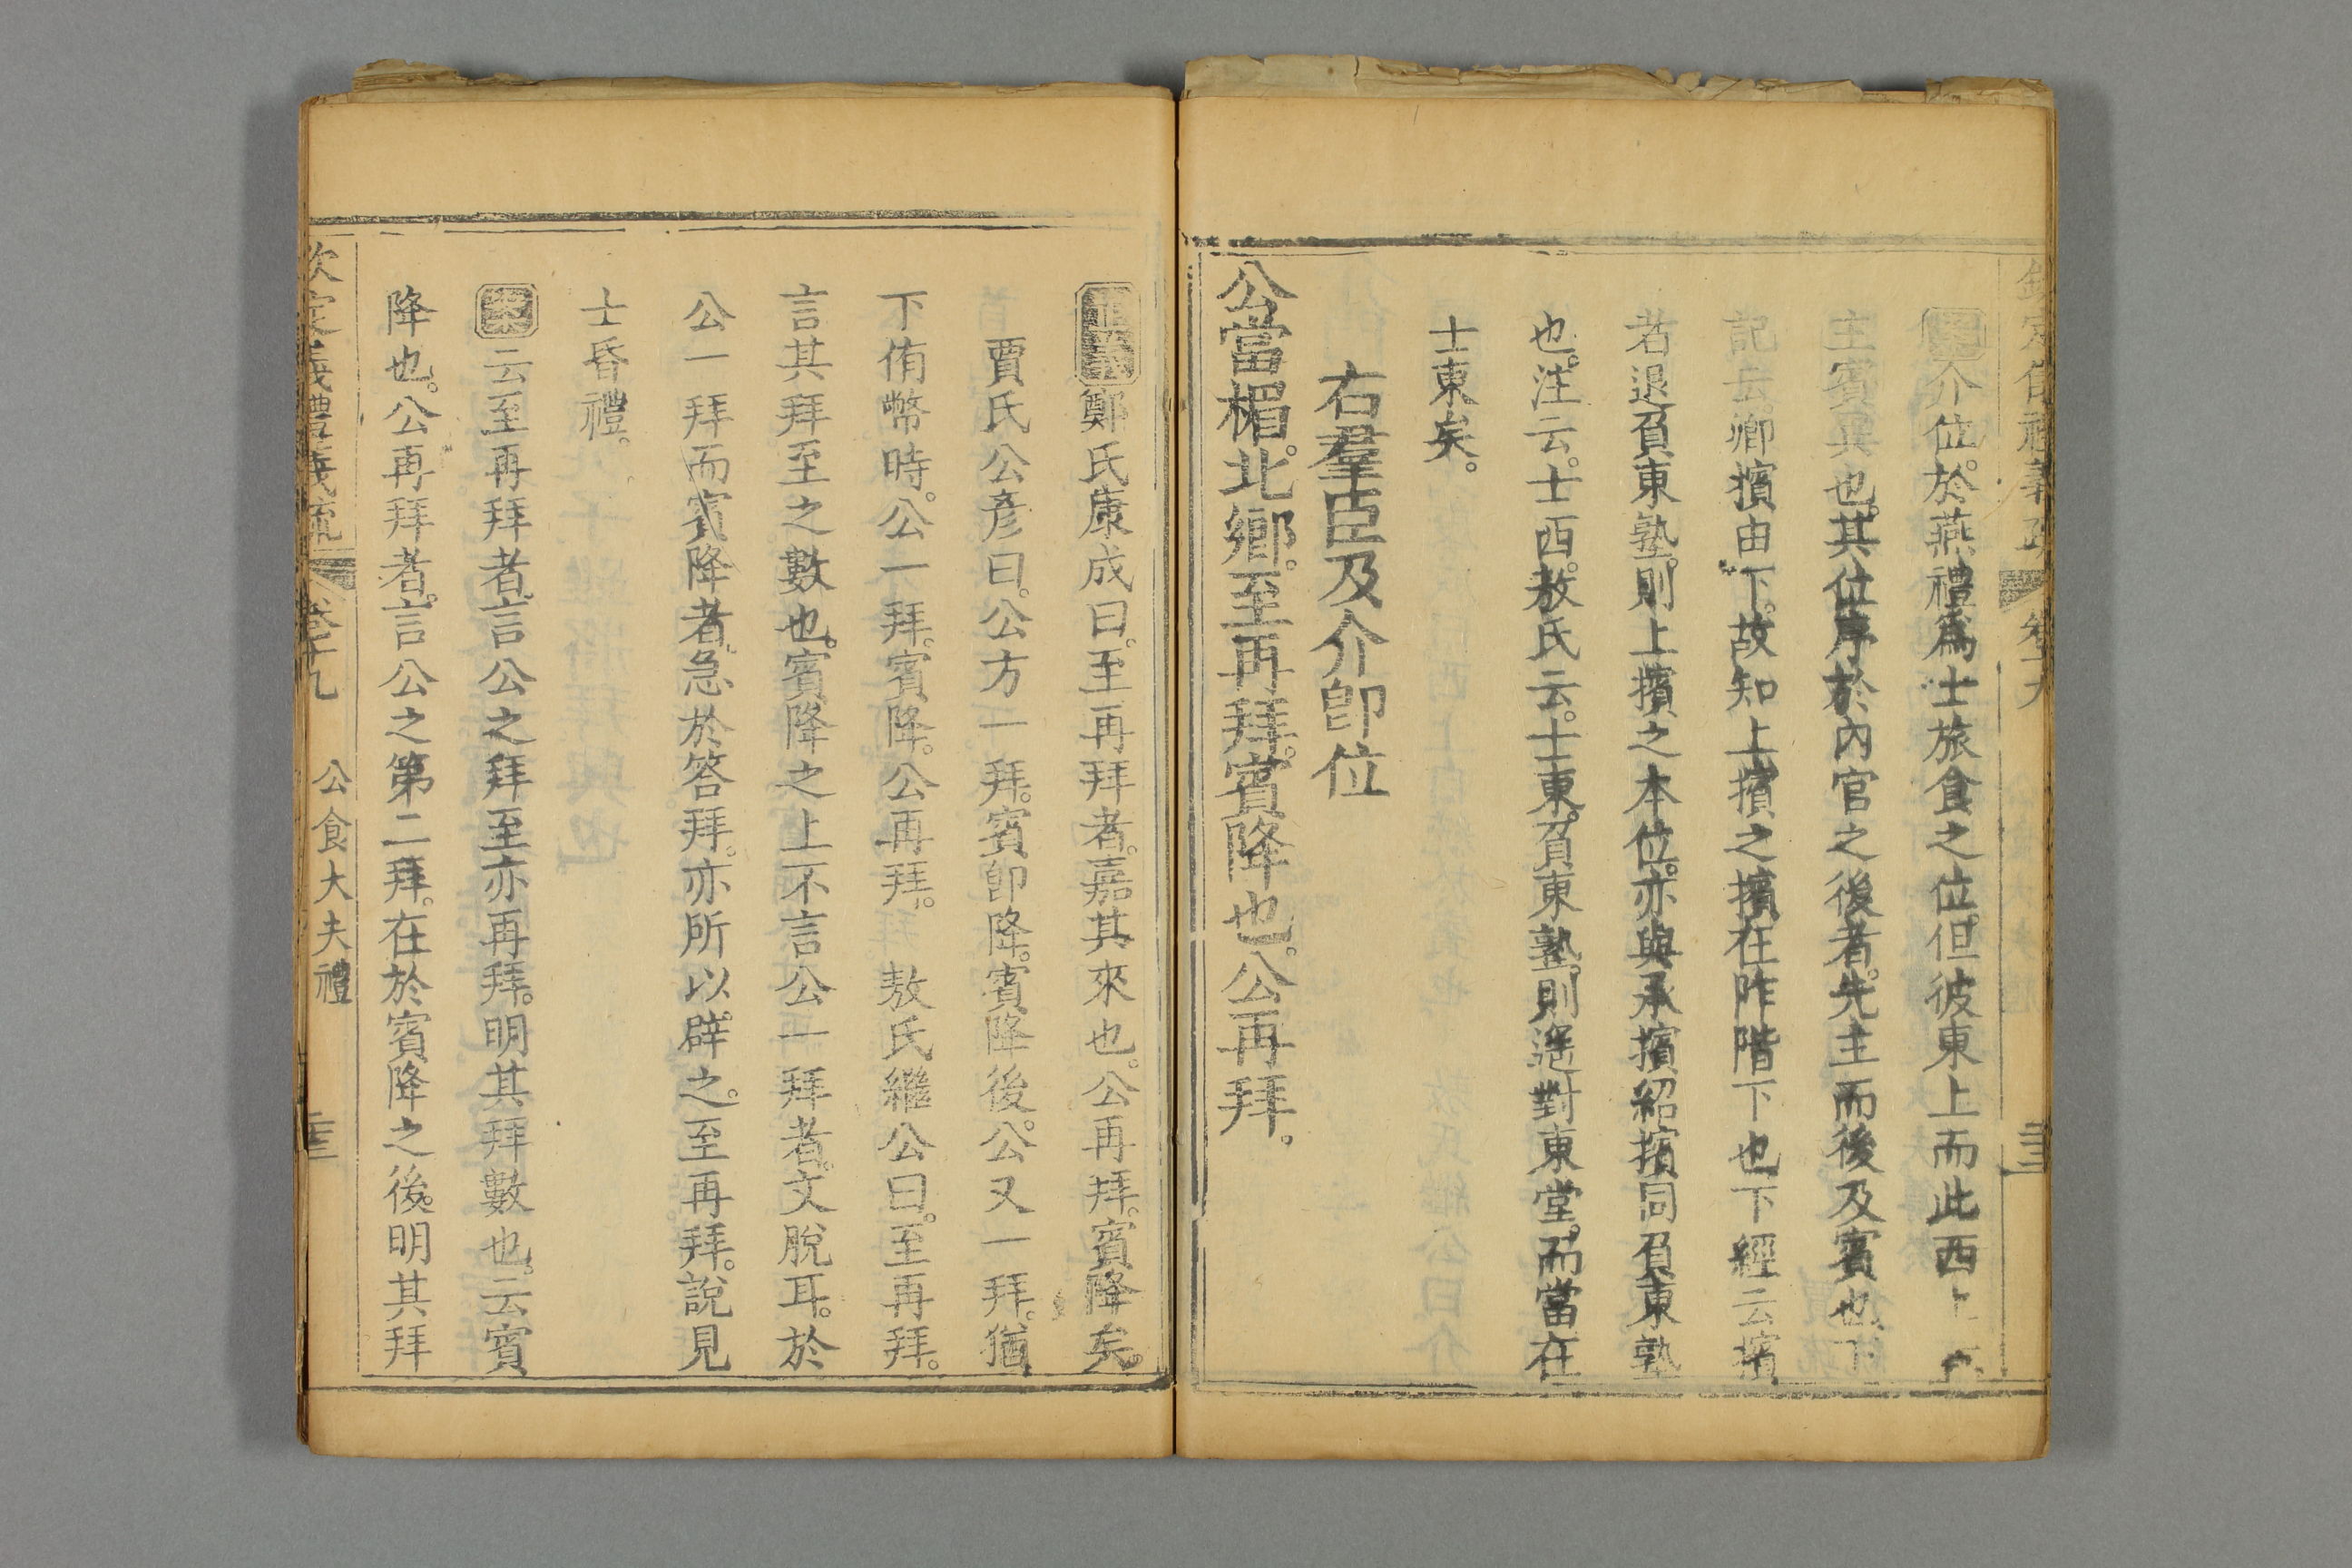 欽定儀禮義疏 卷十九
案介位於燕禮爲士旅食之位。但彼東上而此西上
主賓異也。其位序於內官之後者。先主而後及賓也。下
記云。卿擯由下。故知上擯之擯在阼階下也。下經云擯
者退負東塾。則上擯之本位。亦與承擯紹擯同負東塾
也。注云。士西。敖氏云。士東。負東塾。則遥對東堂。而當在
士東矣。
右羣臣及介卽位
公當楣。北鄉。至再拜。賓降也。公再拜。
正義鄭氏康成曰。至再拜者。嘉其來也。公再拜。賓降矣。
賈氏公彥曰。公方一拜。賓卽降。賓降後。公又一拜。猶
下侑幣時。公一拜。賓降。公再拜。 敖氏繼公曰。至再拜。
言其拜至之數也。賓降之上不言公一拜者。文脫耳。於
公一拜而賓降者。急於答拜。亦所以辟之。至再拜。說見
士昏禮。
案云至再拜者。言公之拜至亦再拜。明其拜數也。云賓
降也。公再拜者。言公之第二拜。在於賓降之後。明其拜
欽定儀禮義疏 卷十九 公食大夫禮